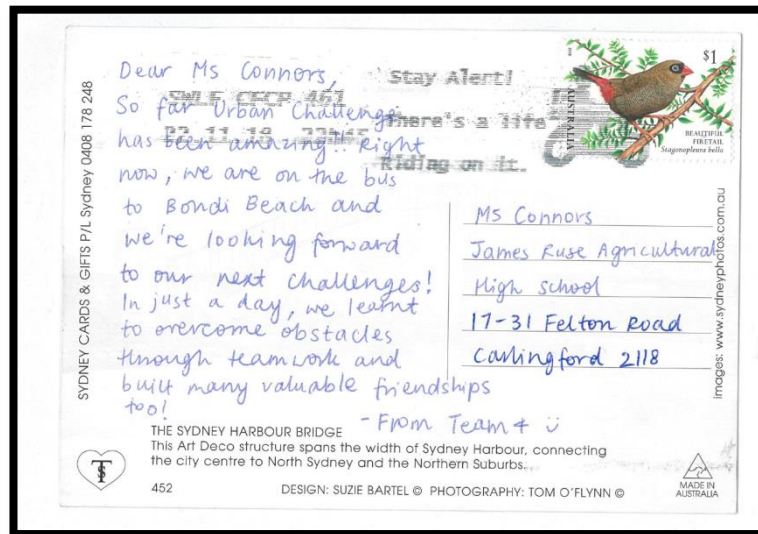 Dear Ms Connors,
So far Urban Challenge
has been amazing!! Right
now, we are on the bus
to Bondi Beach and
we're looking forward
to our next challenges!
In just a day, we learnt
to overcome obstacles
through teamwork and
built many valuable friendships
too!
-From Team 4 ü
Stay Alert!
There's a life
Riding on it.
$1
AUSTRALIA
BEAUTIFUL
FIRETAIL
Stagonopleura bella
Ms Connors
James Ruse Agricultural
High School
17-31 Felton Road
Carlingford 2118
SYDNEY CARDS & GIFTS P/L Sydney 0408 178 248
Images: www.sydneyphotos.com.au
THE SYDNEY HARBOUR BRIDGE
This Art Deco structure spans the width of Sydney Harbour, connecting
the city centre to North Sydney and the Northern Suburbs.
452
DESIGN: SUZIE BARTEL © PHOTOGRAPHY: TOM O'FLYNN ©
MADE IN
AUSTRALIA